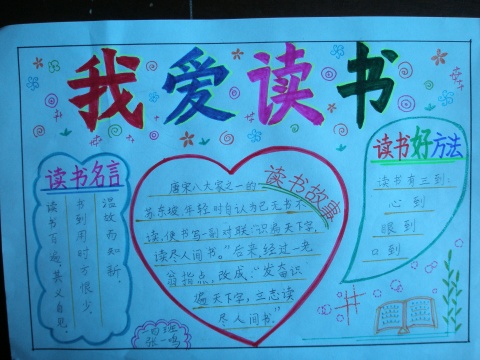 我爱读书
读书名言
温故而知新，
书到用时方恨少，
读书百遍，其义自见。
读书故事
唐宋八大家之一的
苏东坡，年轻时自认为已无书不
读，便书写一副对联："识遍天下字，
读尽人间书。"后来，经过一老
翁指点，改成，"发奋识
遍天下字，立志读
尽人间书"
读书好方法
读书有三到：
心到
眼到
口到
张一鸣